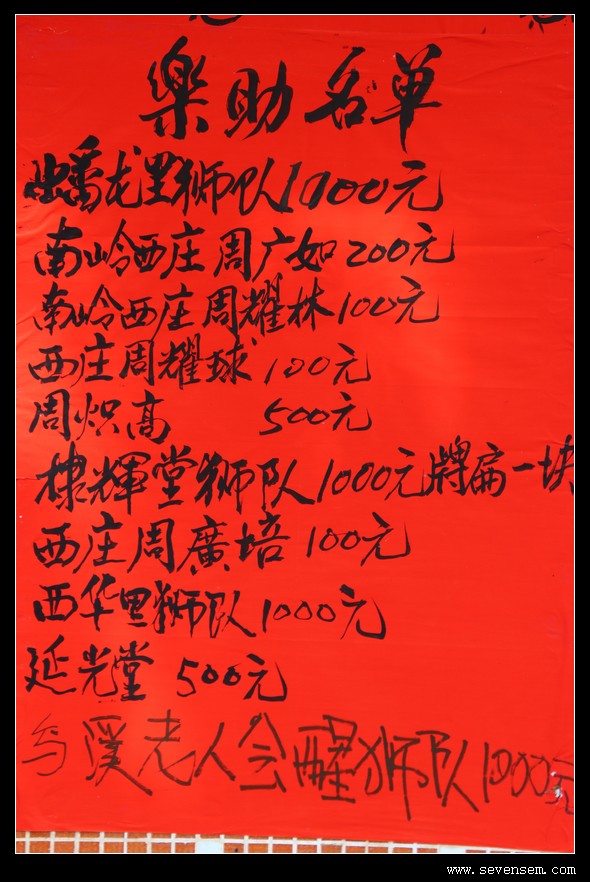 樂助名单
蟠龙里狮队1000元
南岭西庄周广如200元
南岭西庄周耀林100元
西庄周耀球100元
周炽高 500元
棣輝堂狮队1000元牌扁一块
西庄周廣培100元
西华里狮队1000元
延光堂 500元
与溪老人会醒狮队1000元
www.sevensem.com